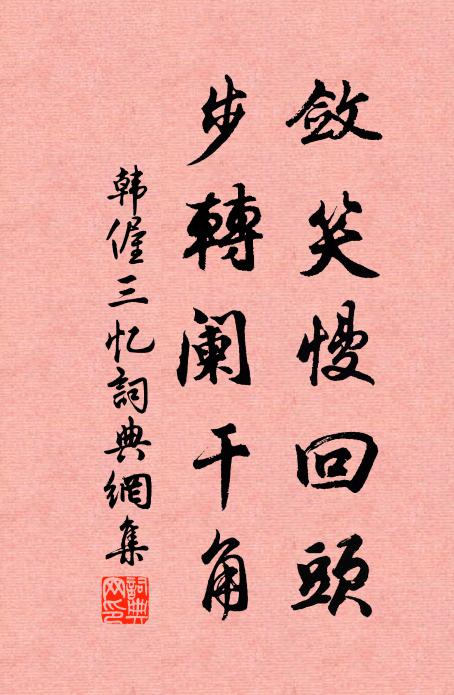 敛笑慢回頭
步轉阑干角
韩偓三忆詞典網集
詞典网印